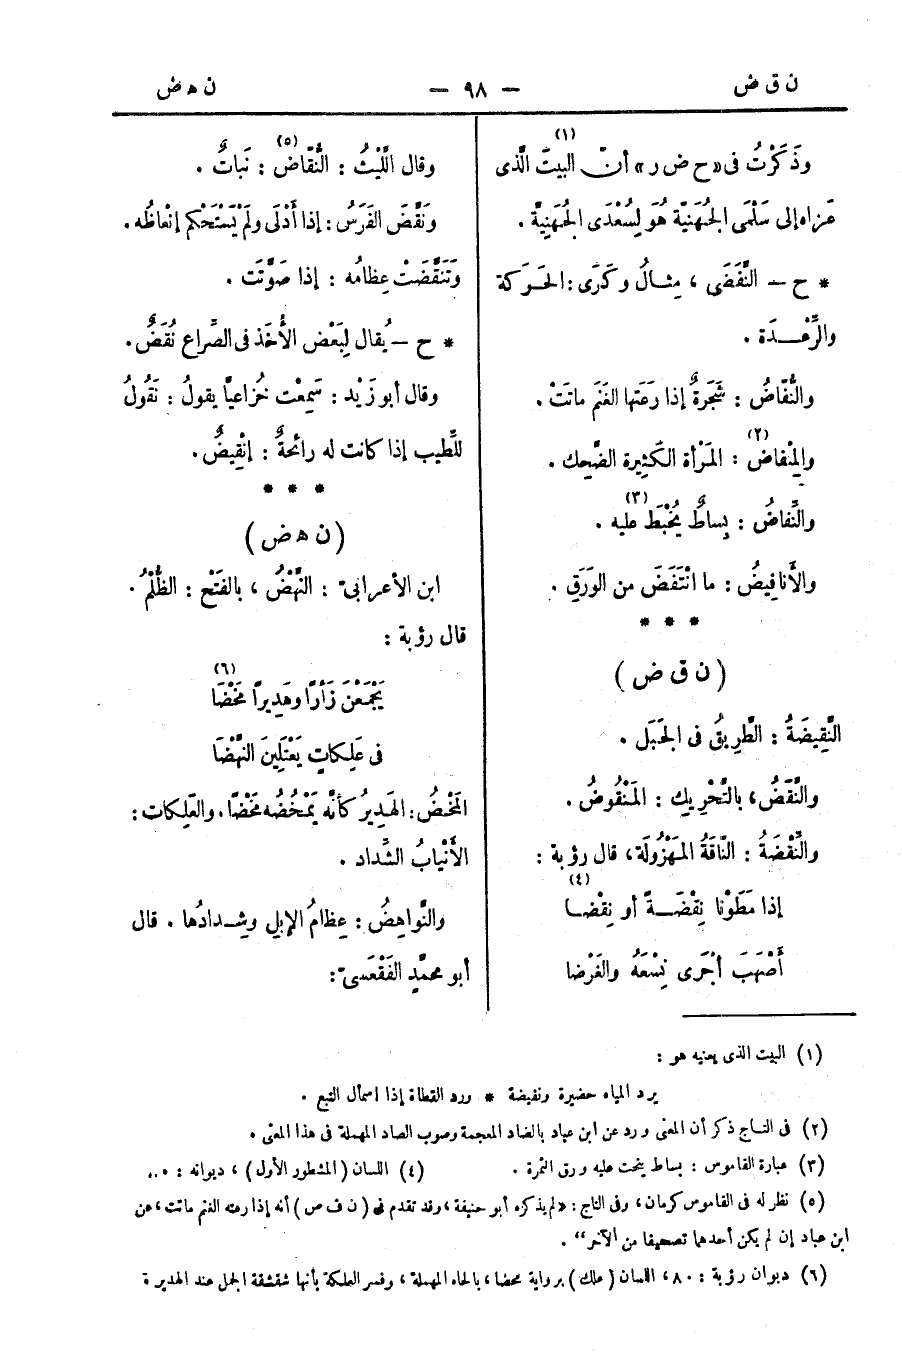 ن ق ض
— ٩٨ —
ن ه ض
وذَكَرْتُ فى «ح ض ر» أنّ البيتَ الَّذى (١)
عَزاه إلى سَلْمَى الجُهَنِيّة هُوَ لِسُعْدَى الجُهَنِيَّة .
* ح — النَّفَضَى ، مِثالُ وَكَرَى : الحَرَكَة
والرِّعْدَة .
والنُّفّاضُ : شَجَرَةٌ إذا رَعَتها الغَنَم ماتَتْ .
والمِنْفاضُ (٢) : المَرْأة الكَثِيرة الضَّحِك .
والنِّفاضُ : بِساطٌ (٣) يُخْبَط عليه .
والأَنافِيضُ : ما انْتَفَضَ من الوَرَقِ .
* * *
( ن ق ض )
النَّقِيضَةُ : الطَّرِيقُ فى الجَبَل .
والنَّقَضُ ، بالتَّحْرِيك : المَنْقُوضُ .
والنِّقْضَةُ : النّاقَةُ المَهْزُولَة ، قال رؤبة :
إذا مَطَوْنا نِقْضَةً (٤) أو نِقْضا
أَصْهَبَ أجْرَى نِسْعَهُ والغَرْضا
وقال اللَّيْثُ : النُّقّاضُ (٥) : نَباتٌ .
ونَقَّضَ الفَرَسُ : إذا أَدْلَى ولَمْ يَسْتَحْكِم إنْعاظُه .
وتَنَقَّضَتْ عِظامُه : إذا صَوَّتَت .
* ح — يُقال لِبَعْض الأُخَذ فى الصِّراع نُقَضٌ .
وقال أبو زَيْد : سَمِعْت خُزاعيًّا يقولُ : نَقُولُ
للطِّيب إذا كانت له رائحةٌ : إنْقِيضٌ .
* * *
( ن ه ض )
ابن الأعرابىّ : النَّهْضُ ، بالفَتْح : الظُّلْمُ .
قال رؤبة :
يَجْمَعْنَ زَأرًا وهَدِيرًا مَخْضَا (٦)
فى عَلِكاتٍ يَعْتَلِينَ النَّهْضَا
المَخْضُ : الهَدِيرُ كأنَّه يَمْخُضُه مَخْضًا . والعَلِكات :
الأَنْيابُ الشِّداد .
والنَّواهِضُ : عِظامُ الإبِلِ وشِدادُها . قال
أبو محمّدٍ الفَقْعَسىّ :
(١) البيت الذى يعنيه هو :
يرد المياه حضيرة ونفيضة * ورد القطاة إذا اسمأل التبع .
(٢) فى التاج ذكر أن المعنى ورد عن ابن عباد بالضاد المعجمة وصوب الصاد المهملة فى هذا المعنى .
(٣) عبارة القاموس : بساط ينحت عليه ورق الثمرة . (٤) اللسان (المشطور الأول) ، ديوانه :
(٥) نظر له فى القاموس كرمان ، وفى التاج : «لم يذكره أبو حنيفة ، وقد تقدم فى (ن ف ص) أنه إذا رعته الغنم ماتت ، عن
ابن عباد إن لم يكن أحدهما تصحيفا من الآخر" .
(٦) ديوان رؤبة : ٨٠ ، اللسان (علك) برواية محضا ، بالحاء المهملة ، وفسر العلكة بأنها شقشقة الجمل عند الهدير .